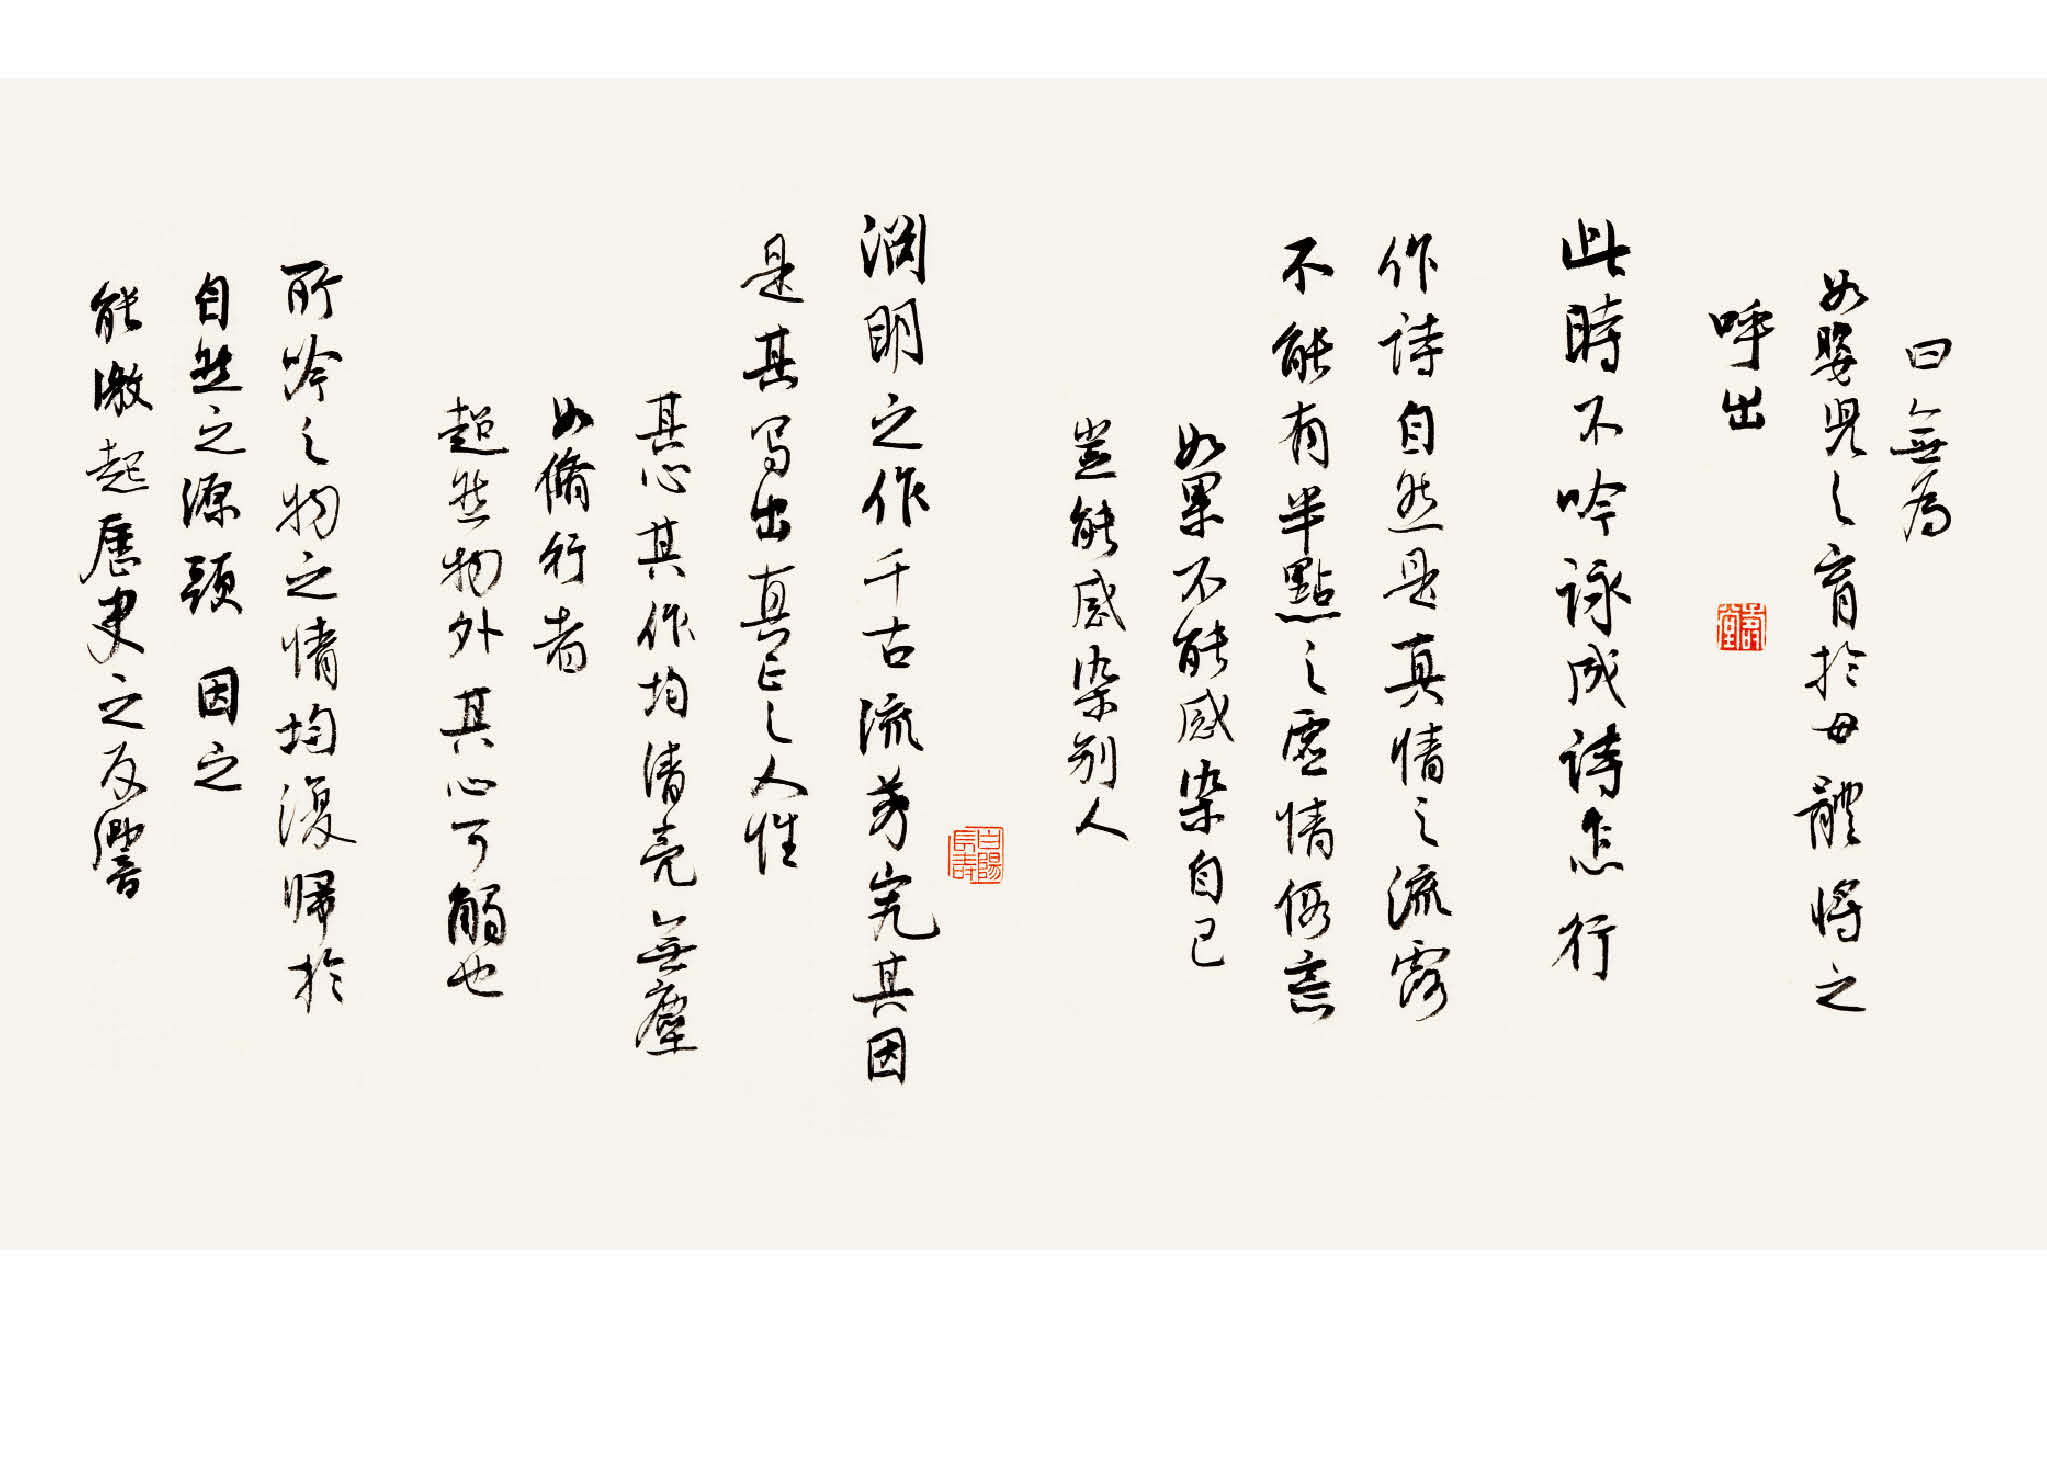 曰無為
如嬰兒之育於母體將之
呼出
此時不吟詠成詩怎行
作詩自然是真情之流露
不能有半點之虛情假意
如果不能感染自己
豈能感染別人
百陽長壽
淵明之作千古流芳究其因
是其写出真正之人性
其心其作均清亮無塵
如脩行者
超然物外其心可觸也
所吟之物之情均復歸於
自然之源頭 因之
能激起歷史之反響